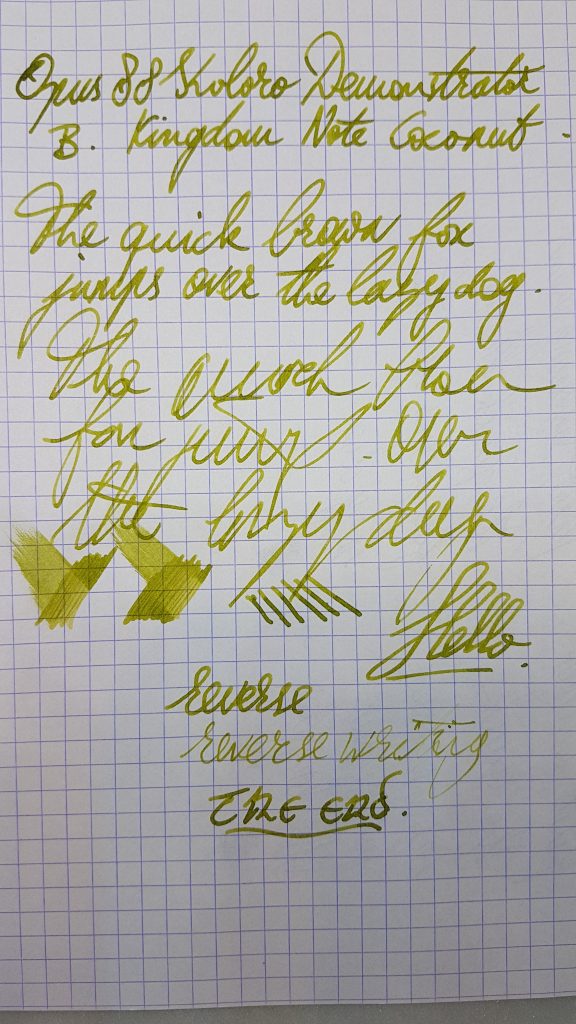 Opus 88 Koloro Demonstrator
B. Kingdom Note Coconut.
The quick brown fox
jumps over the lazy dog.
The quick
fox jumps. Over
the lazy dog
Hello.
reverse
reverse writing
THE END.